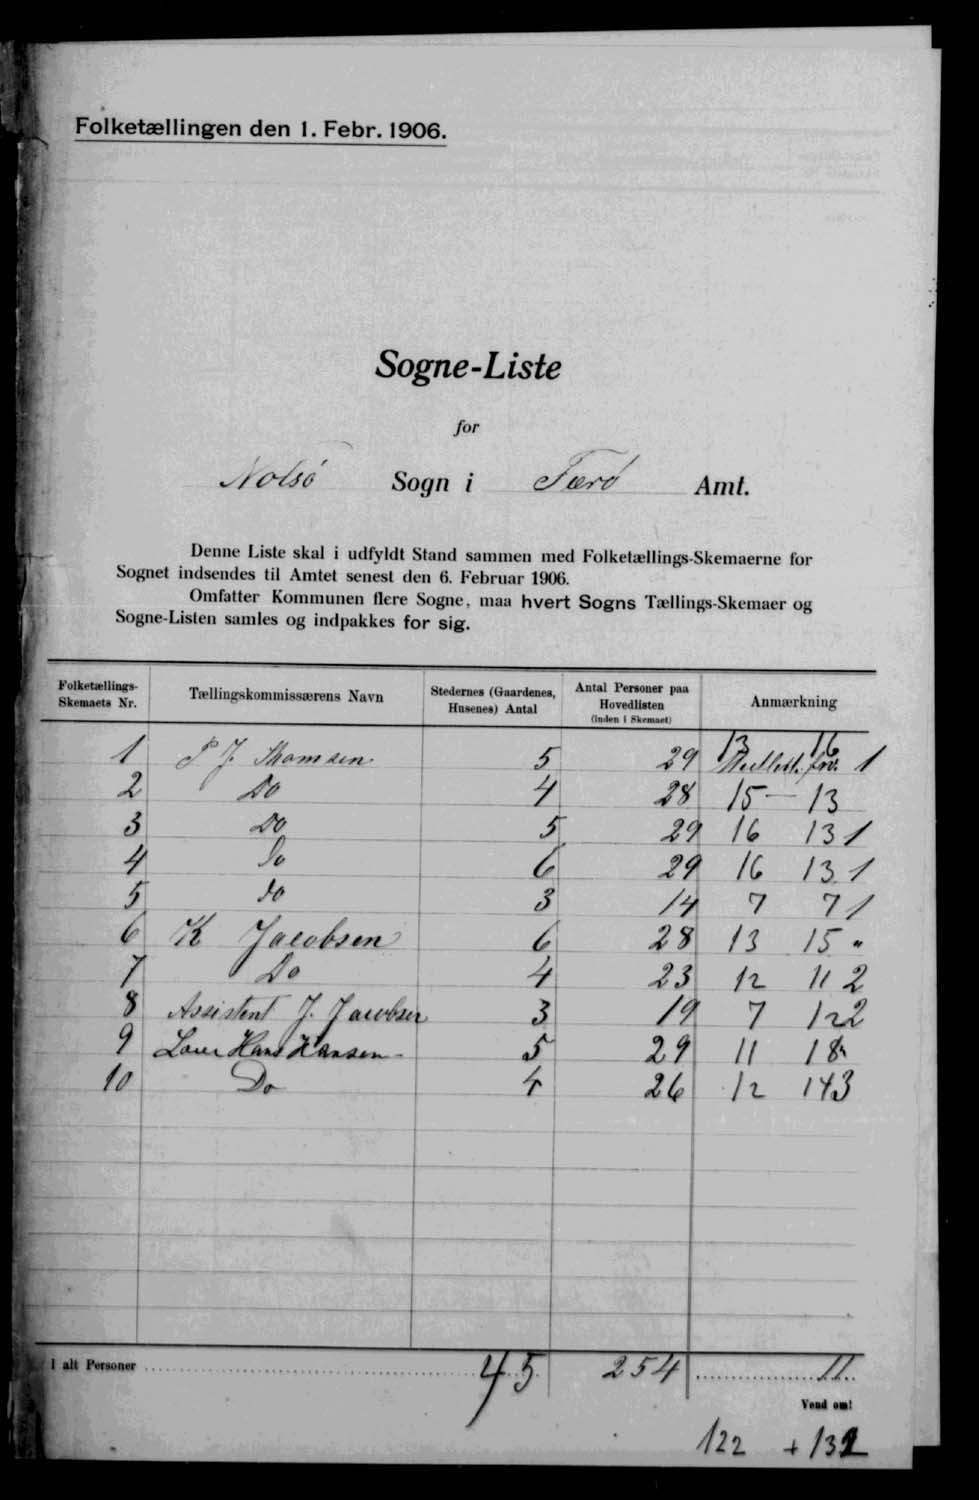 Folketællingen den 1. Febr. 1906.
Sogne-Liste
for
Nolsö Sogn i Færö Amt.
Denne Liste skal i udfyldt Stand sammen med Folketællings-Skemaerne for
Sognet indsendes til Amtet senest den 6. Februar 1906.
Omfatter Kommunen flere Sogne, maa hvert Sogns Tællings-Skemaer og
Sogne-Listen samles og indpakkes for sig.
Folketællings-Skemaets Nr. Tællingskommissærens Navn Stedernes (Gaardenes, Husenes) Antal Antal Personer paa Hovedlisten (inden i Skemaet) Anmærkning
13 16
1 P J Thomsen 5 29 1
2 Do 4 28 15 — 13
3 Do 5 29 16 13 1
4 Do 6 29 16 13 1
5 do 3 14 7 7 1
6 K Jacobsen 6 28 13 15 "
7 Do 4 23 12 11 2
8 Assistent J. Jacobsen 3 19 7 12 2
9 Hans Hansen 5 29 11 18
10 Do 4 26 12 14 3
I alt Personer 45 254 11
Vend om!
122 + 132